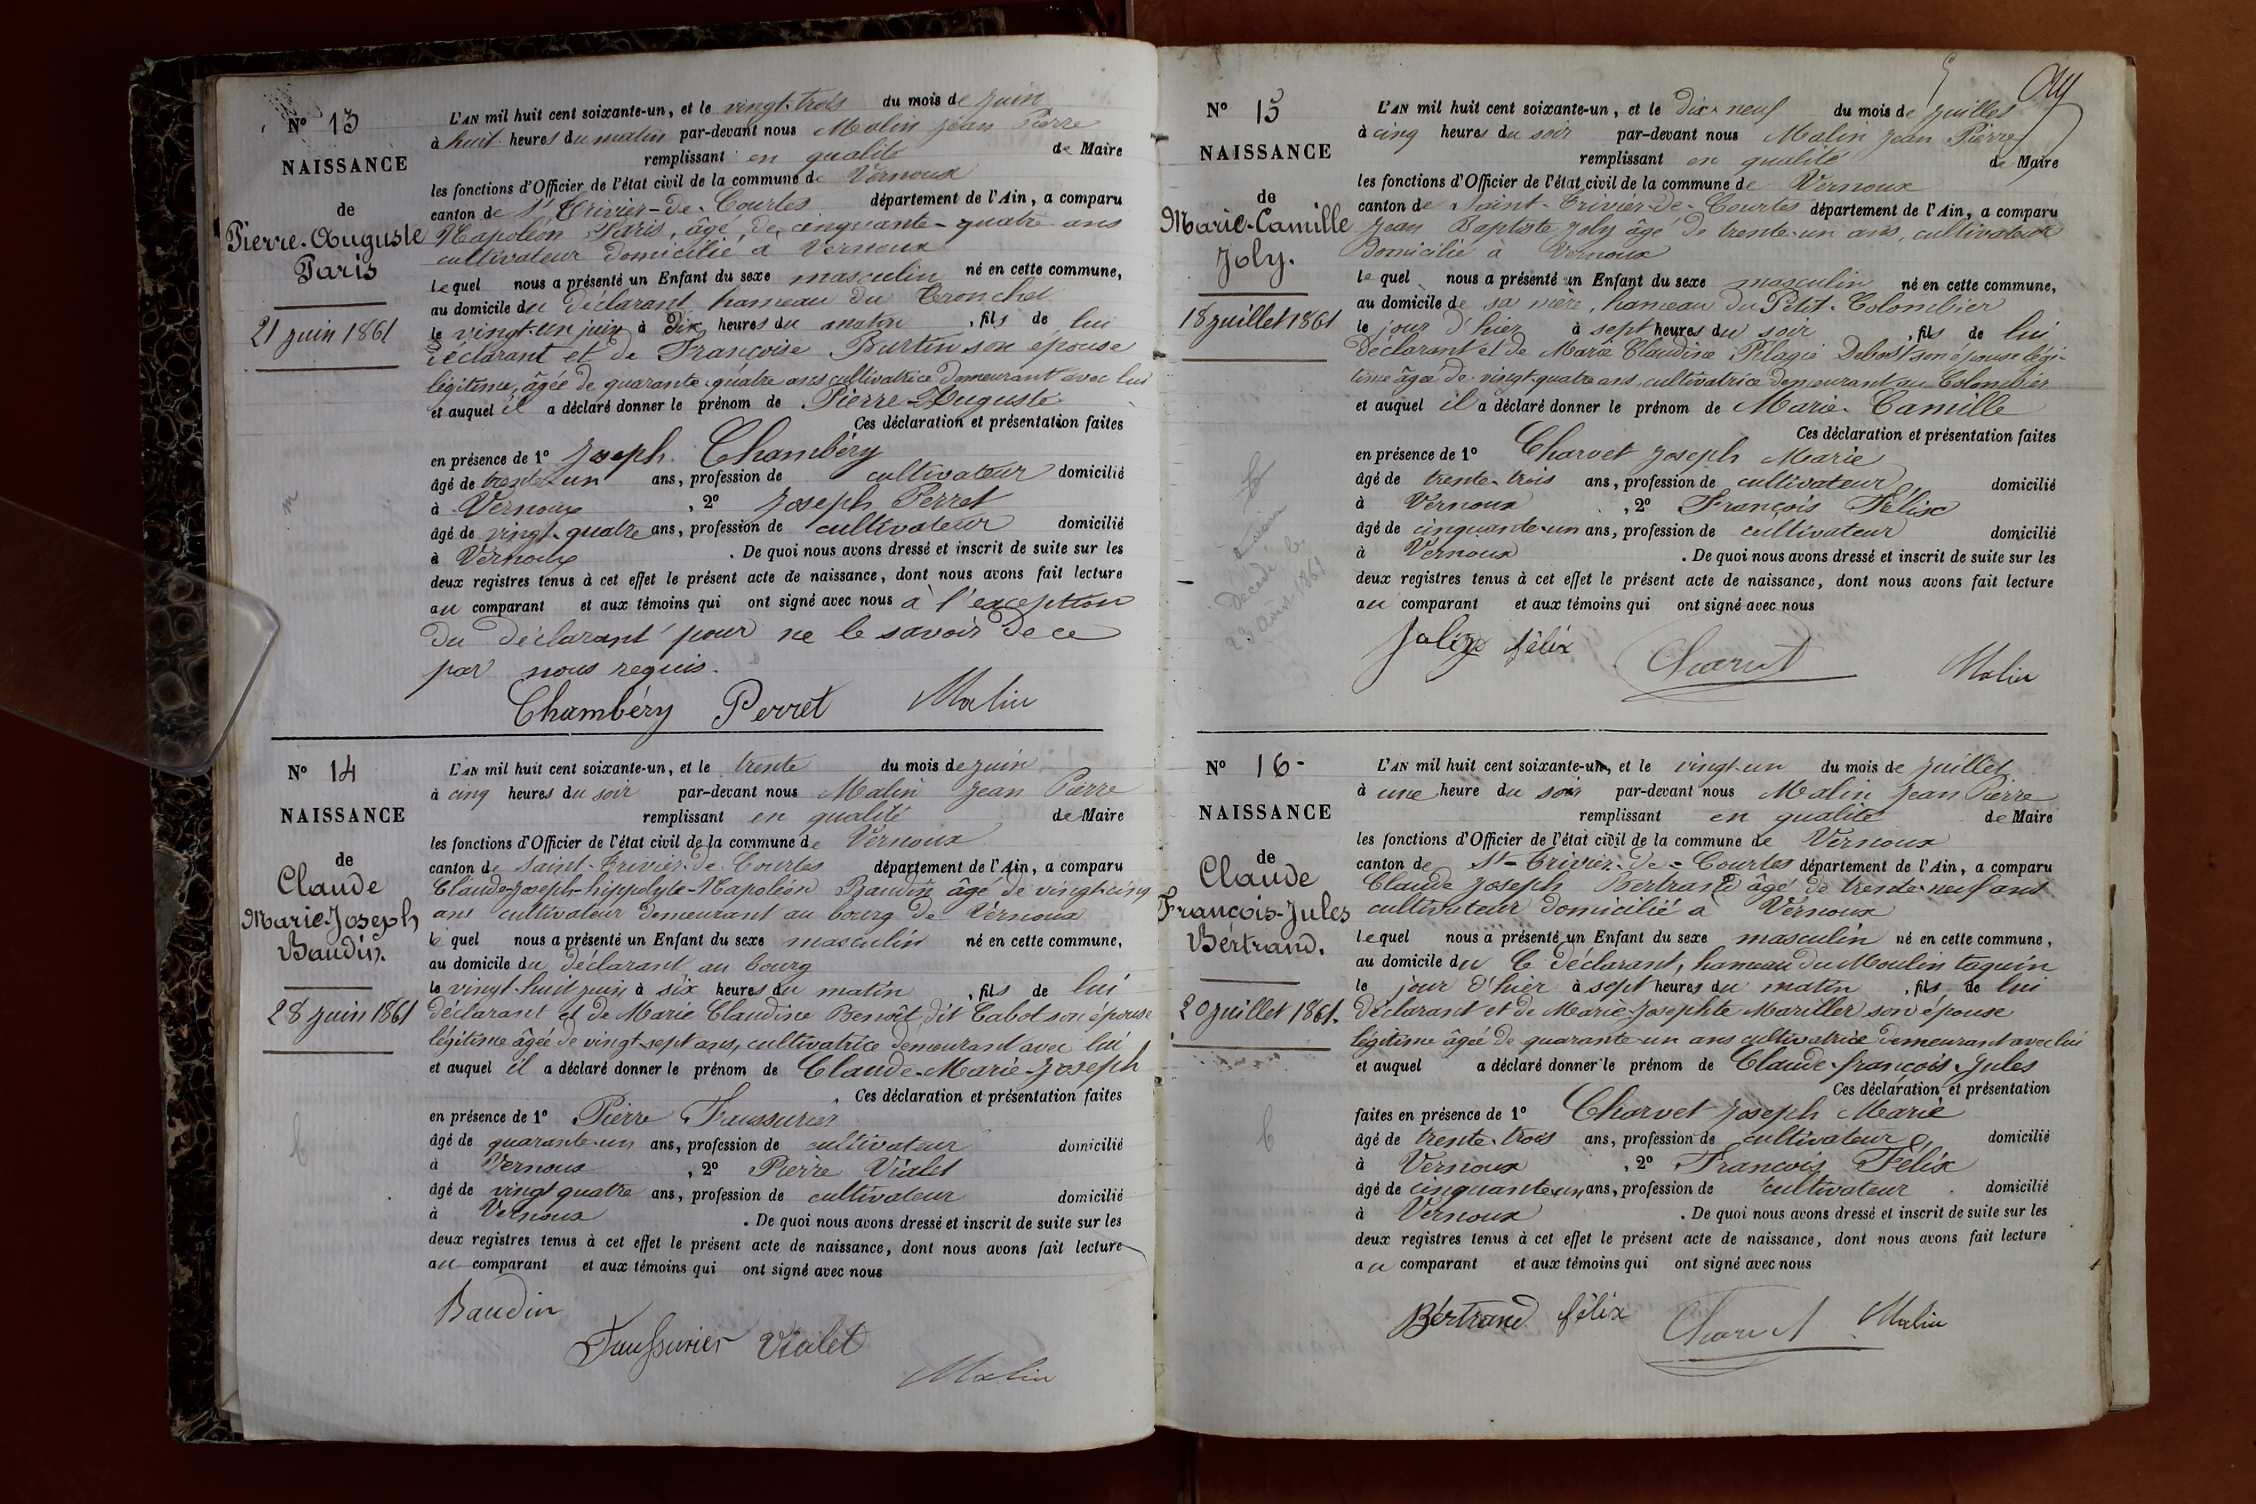 N° 13
NAISSANCE
de
Pierre-Auguste
Paris
21 juin 1861
L'AN mil huit cent soixante-un, et le vingt-trois du mois de juin
à huit heures du matin par-devant nous Malin Jean Pierre
remplissant en qualité de Maire
les fonctions d'Officier de l'état civil de la commune de Vernoux
canton de St Trivier-de-Courtes département de l'Ain, a comparu
Napoléon Paris, âgé de cinquante-quatre ans
cultivateur domicilié à Vernoux
lequel nous a présenté un Enfant du sexe masculin né en cette commune,
au domicile du déclarant hameau du Tronchet
le vingt-un juin à dix heures du matin, fils de lui
déclarant et de Françoise Burtin son épouse
légitime, âgée de quarante-quatre ans cultivatrice demeurant avec lui
et auquel il a déclaré donner le prénom de Pierre-Auguste
Ces déclaration et présentation faites
en présence de 1° Joseph Chambéry
âgé de trente-un ans, profession de cultivateur domicilié
à Vernoux, 2° Joseph Perret
âgé de vingt-quatre ans, profession de cultivateur domicilié
à Vernoux. De quoi nous avons dressé et inscrit de suite sur les
deux registres tenus à cet effet le présent acte de naissance, dont nous avons fait lecture
au comparant et aux témoins qui ont signé avec nous à l'exception
du déclarant pour ne le savoir de ce
par nous requis.
Chambéry Perret Malin
N° 14
NAISSANCE
de
Claude
Marie-Joseph
Baudin.
28 juin 1861
L'AN mil huit cent soixante-un, et le trente du mois de juin
à cinq heures du soir par-devant nous Malin Jean Pierre
remplissant en qualité de Maire
les fonctions d'Officier de l'état civil de la commune de Vernoux
canton de Saint-Trivier-de-Courtes département de l'Ain, a comparu
Claude-Joseph-hippolyte-Napoléon Baudin âgé de vingt-cinq
ans cultivateur demeurant au bourg de Vernoux
lequel nous a présenté un Enfant du sexe masculin né en cette commune,
au domicile du déclarant au bourg
le vingt-huit juin à six heures du matin, fils de lui
déclarant et de Marie Claudine Benoît dit Cabot son épouse
légitime âgée de vingt-sept ans, cultivatrice demeurant avec lui
et auquel il a déclaré donner le prénom de Claude-Marie-Joseph
Ces déclaration et présentation faites
en présence de 1° Pierre Faussurier
âgé de quarante-un ans, profession de cultivateur domicilié
à Vernoux, 2° Pierre Vialet
âgé de vingt quatre ans, profession de cultivateur domicilié
à Vernoux. De quoi nous avons dressé et inscrit de suite sur les
deux registres tenus à cet effet le présent acte de naissance, dont nous avons fait lecture
au comparant et aux témoins qui ont signé avec nous
Baudin
Faussurier Vialet
Malin
N° 15
NAISSANCE
de
Marie-Camille
Joly.
18 juillet 1861
Décédé le
23 août 1861
L'AN mil huit cent soixante-un, et le dix-neuf du mois de juillet
à cinq heures du soir par-devant nous Malin Jean Pierre
remplissant en qualité de Maire
les fonctions d'Officier de l'état civil de la commune de Vernoux
canton de Saint-Trivier-de-Courtes département de l'Ain, a comparu
Jean Baptiste Joly âgé de trente-un ans, cultivateur
domicilié à Vernoux
lequel nous a présenté un Enfant du sexe masculin né en cette commune,
au domicile de sa mère, hameau du Petit-Colombier
le jour d'hier à sept heures du soir, fils de lui
déclarant et de Marie Claudine Pélagie Debost son épouse légi-
time âgée de vingt-quatre ans, cultivatrice demeurant au Colombier
et auquel il a déclaré donner le prénom de Marie-Camille
Ces déclaration et présentation faites
en présence de 1° Charvet Joseph Marie
âgé de trente-trois ans, profession de cultivateur domicilié
à Vernoux, 2° François Félix
âgé de cinquante-un ans, profession de cultivateur domicilié
à Vernoux. De quoi nous avons dressé et inscrit de suite sur les
deux registres tenus à cet effet le présent acte de naissance, dont nous avons fait lecture
au comparant et aux témoins qui ont signé avec nous
Joly félix Charvet Malin
N° 16-
NAISSANCE
de
Claude
François-Jules
Bertrand.
20 juillet 1861.
L'AN mil huit cent soixante-un, et le vingt-un du mois de juillet
à une heure du soir par-devant nous Malin Jean Pierre
remplissant en qualité de Maire
les fonctions d'Officier de l'état civil de la commune de Vernoux
canton de St-Trivier-de-Courtes département de l'Ain, a comparu
Claude Joseph Bertrand âgé de trente-neuf ans
cultivateur domicilié à Vernoux
lequel nous a présenté un Enfant du sexe masculin né en cette commune,
au domicile du déclarant, hameau du Moulin taquin
le jour d'hier à sept heures du matin, fils de lui
déclarant et de Marie-Josephte Mariller son épouse
légitime âgée de quarante-un ans cultivatrice demeurant avec lui
et auquel a déclaré donner le prénom de Claude-françois-Jules
Ces déclaration et présentation
faites en présence de 1° Charvet Joseph Marie
âgé de trente-trois ans, profession de cultivateur, domicilié
à Vernoux, 2° François Félix
âgé de cinquante-un ans, profession de cultivateur domicilié
à Vernoux. De quoi nous avons dressé et inscrit de suite sur les
deux registres tenus à cet effet le présent acte de naissance, dont nous avons fait lecture
au comparant et aux témoins qui ont signé avec nous
Bertrand félix Charvet Malin